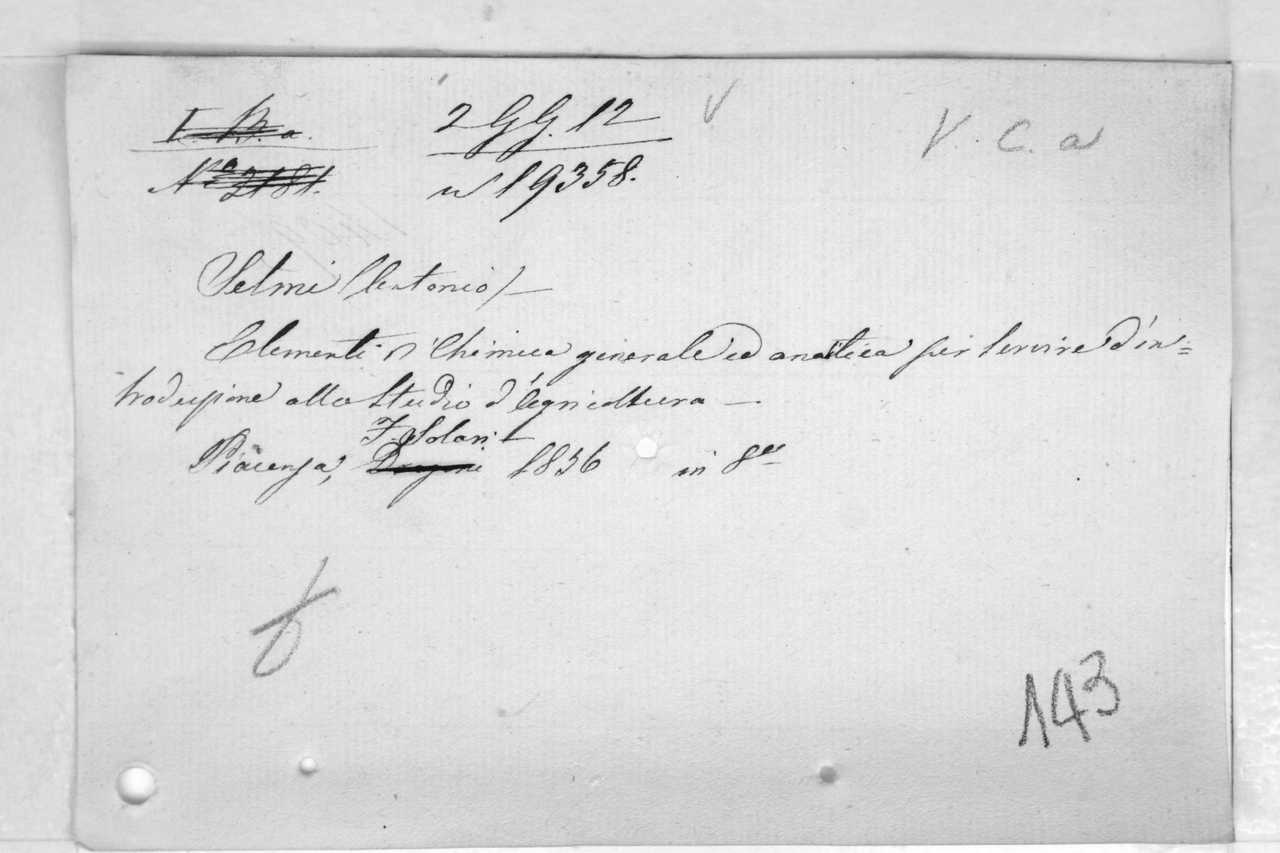 I. B. a. 2 G G. 12 V V. C. a
No 2181. n 19358.
Selmi (Antonio) —
Elementi di Chimica generale ed analitica per servire d'in=
troduzione allo studio d'Agricoltura —.
F. Solari
Piacenza, 1856 in 8º
143